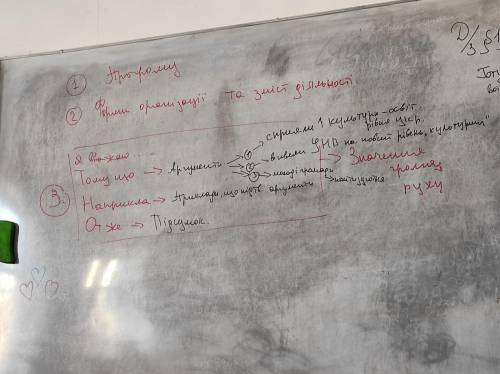 ① Програму
② Форми організації та зміст діяльності
Я вважаю
Тому що → Аргументи
① сприяли ↑ культурно-освіт.
рівня
② вивели УНВ на новий рівень „культурний"
③ молоді громади
→ Значення
громад
руху
③.
Наприклад → Приклади, що підтв. аргументи
Отже → Підсумок.
Д/з § 1